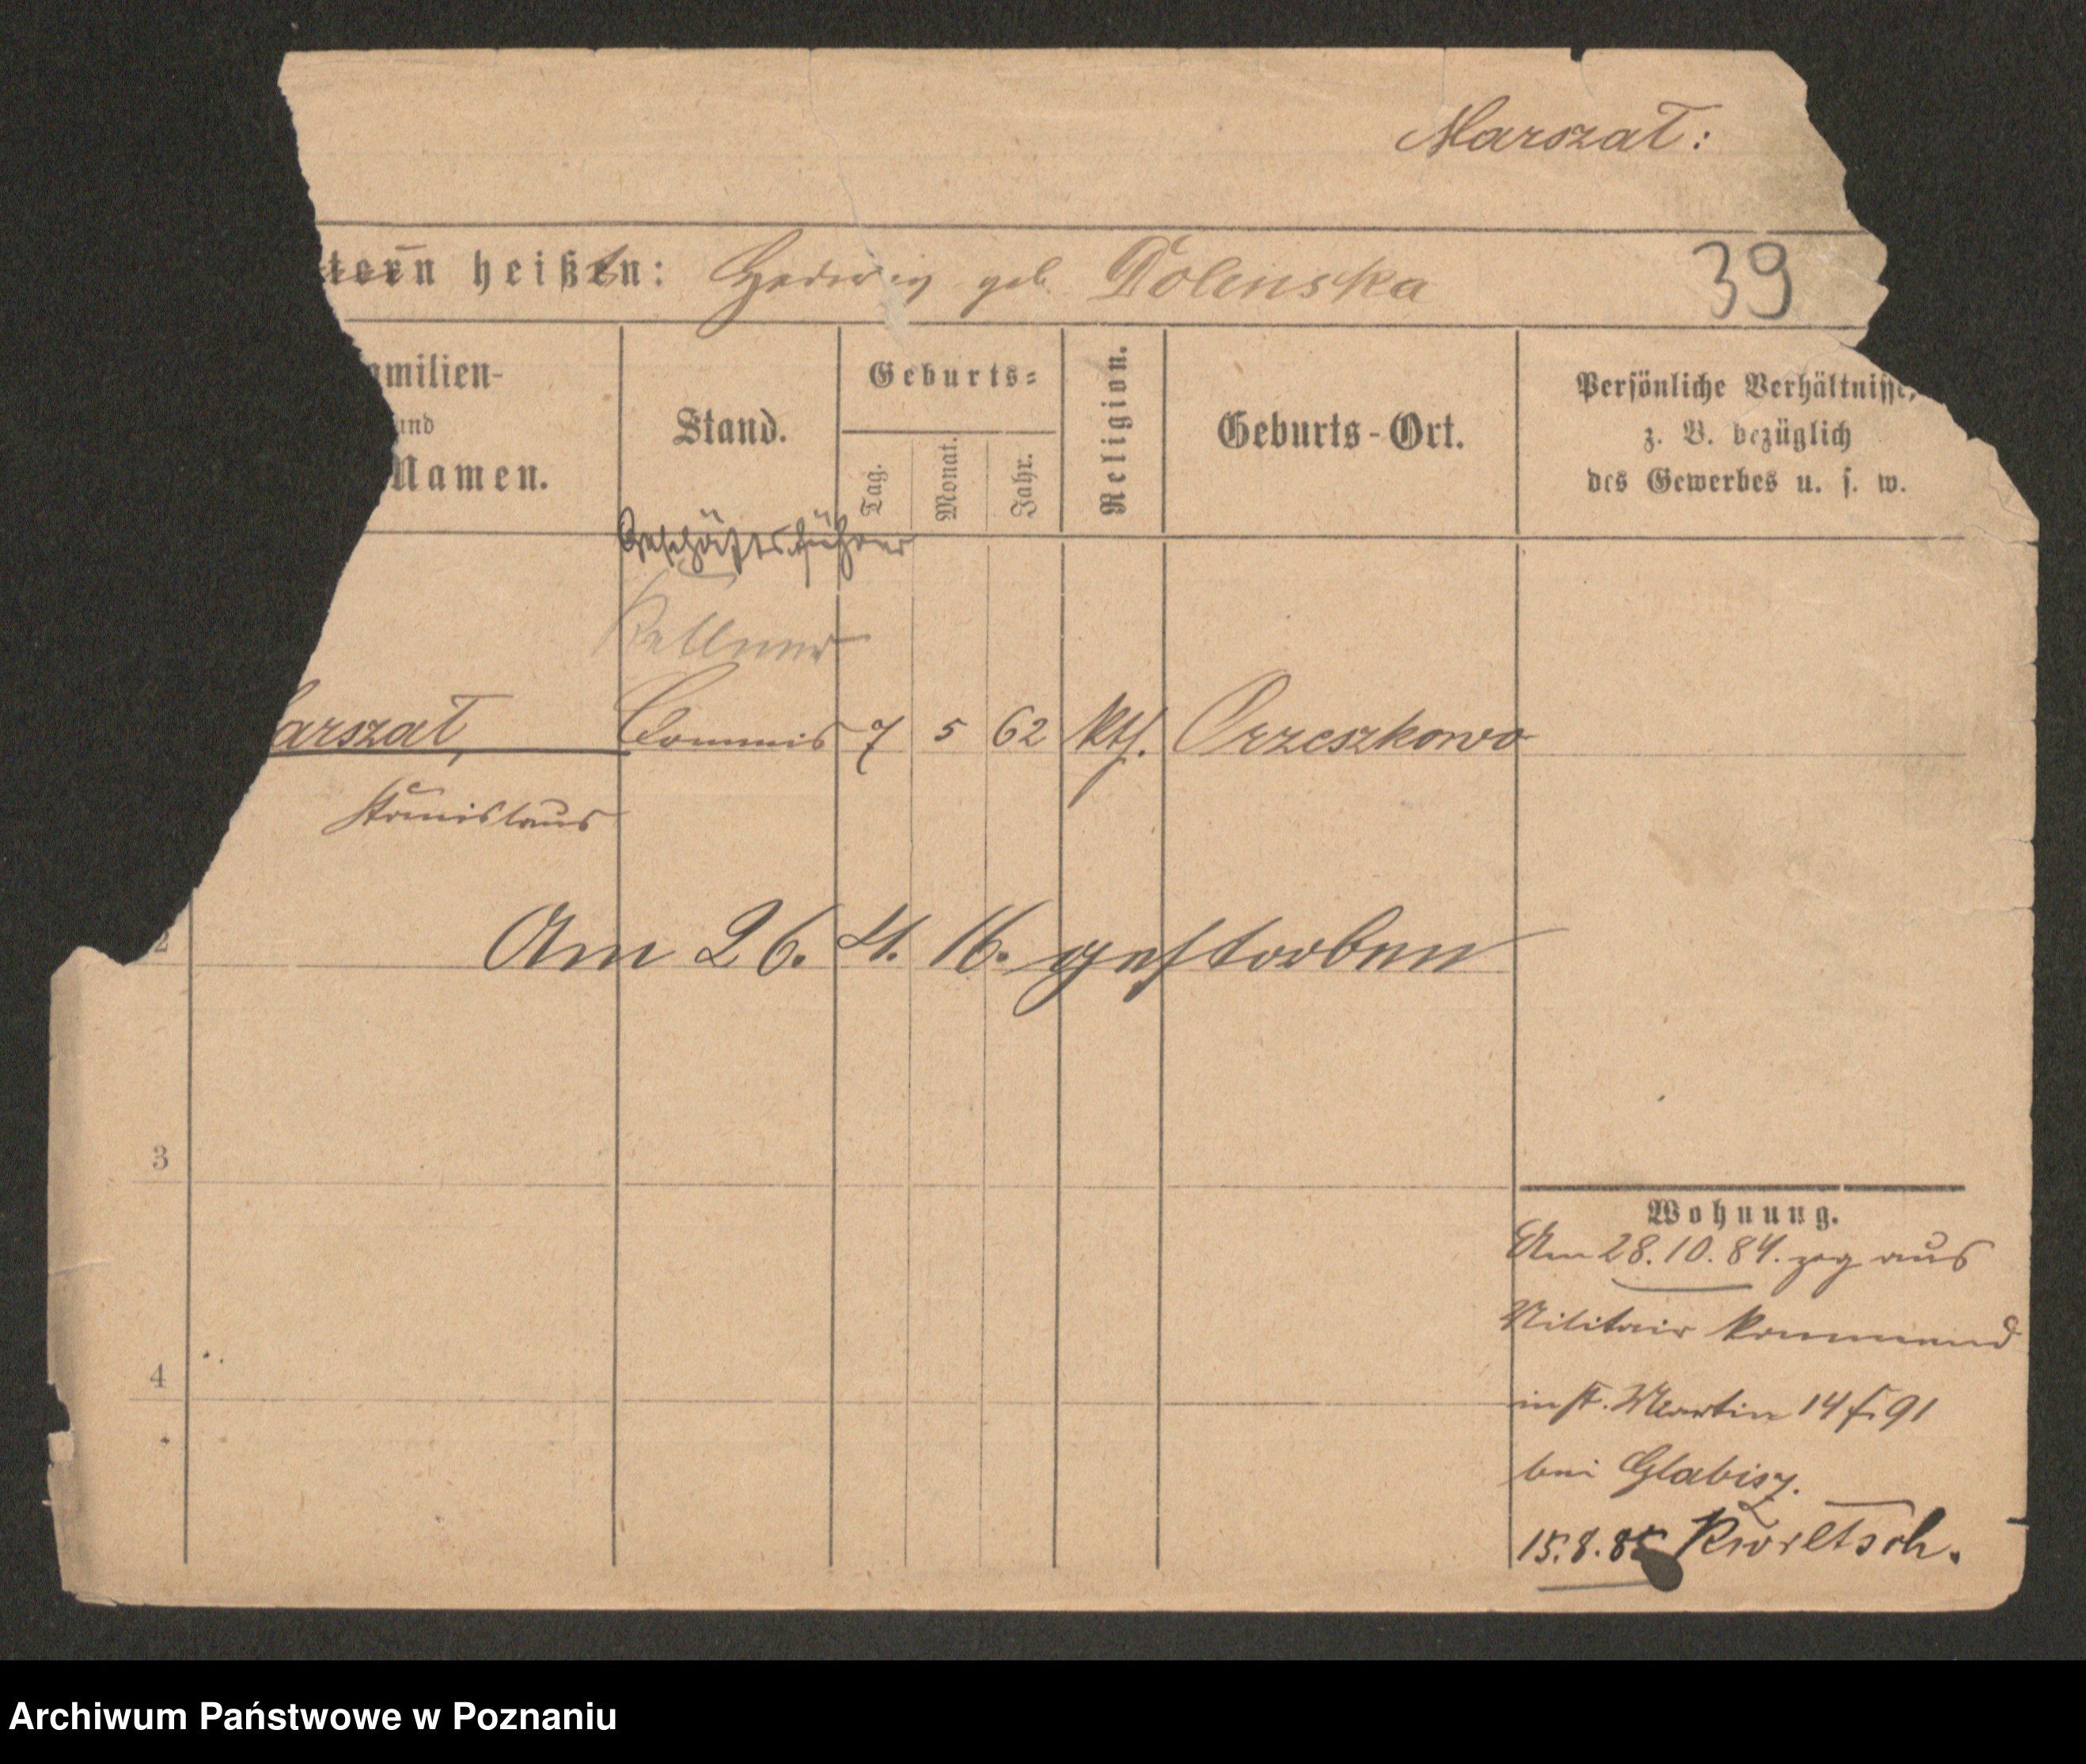 Marszał:
tern heißen: Hedwig geb. Dolinska
39
amilien-
und
Namen.
Stand.
Geburts-
Tag.
Monat.
Jahr.
Religion.
Geburts-Ort.
Persönliche Verhältnisse,
z. B. bezüglich
des Gewerbes u. s. w.
Geschäftsführer
Kellner
arszał, Commis 7 5 62 kth. Orzeszkowo
Stanislaus
2
Am 26. 4. 16. gestorben
3
Wohnung.
Am 28.10.84. zog aus
Militair Kommand
in St. Martin 14 f. 91
4
bei Glabisz.
15.8.85 Kwiltsch.
Archiwum Państwowe w Poznaniu